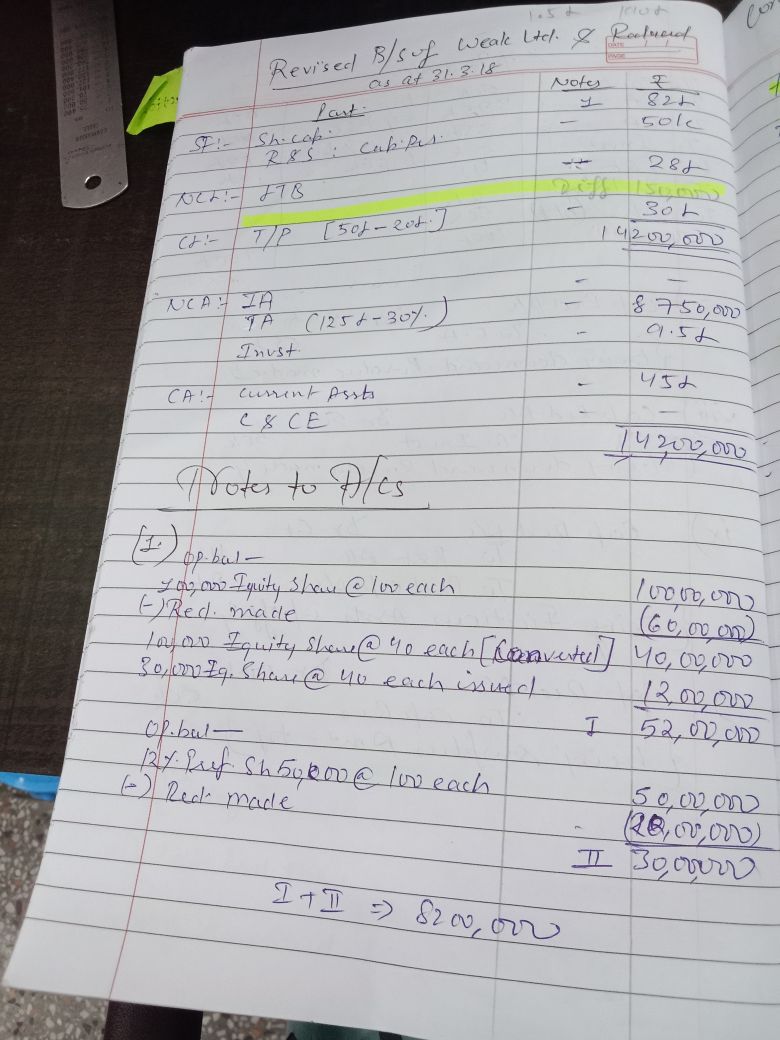 Revised B/s of Weak Ltd. & Reduced
DATE
PAGE
as at 31.3.18
Part. Notes ₹
SF:- Sh. cap. 1 82L
R&S : Cap. Res. — 50k
NCL:- LTB 28L
Diff 150,000
CL:- T/P [50L - 20L.] - 30L
14200,000
NCA:- IA - -
TA (125L - 30%.) - 8750,000
Invst. - 9.5L
CA:- Current Assts - 45L
C & CE - -
14200,000
Notes to A/cs
(1.) Op. bal —
100,000 Equity Share @ 100 each 100,00,000
(-) Red. made (60,00,000)
100,000 Equity Share @ 40 each [Converted] 40,00,000
30,000 Eq. Share @ 40 each issued 1200,000
I 52,00,000
Op. bal —
12%. Pref. Sh 50,000 @ 100 each 50,00,000
(-) Red. made (20,00,000)
II 30,00,000
I + II ⇒ 8200,000